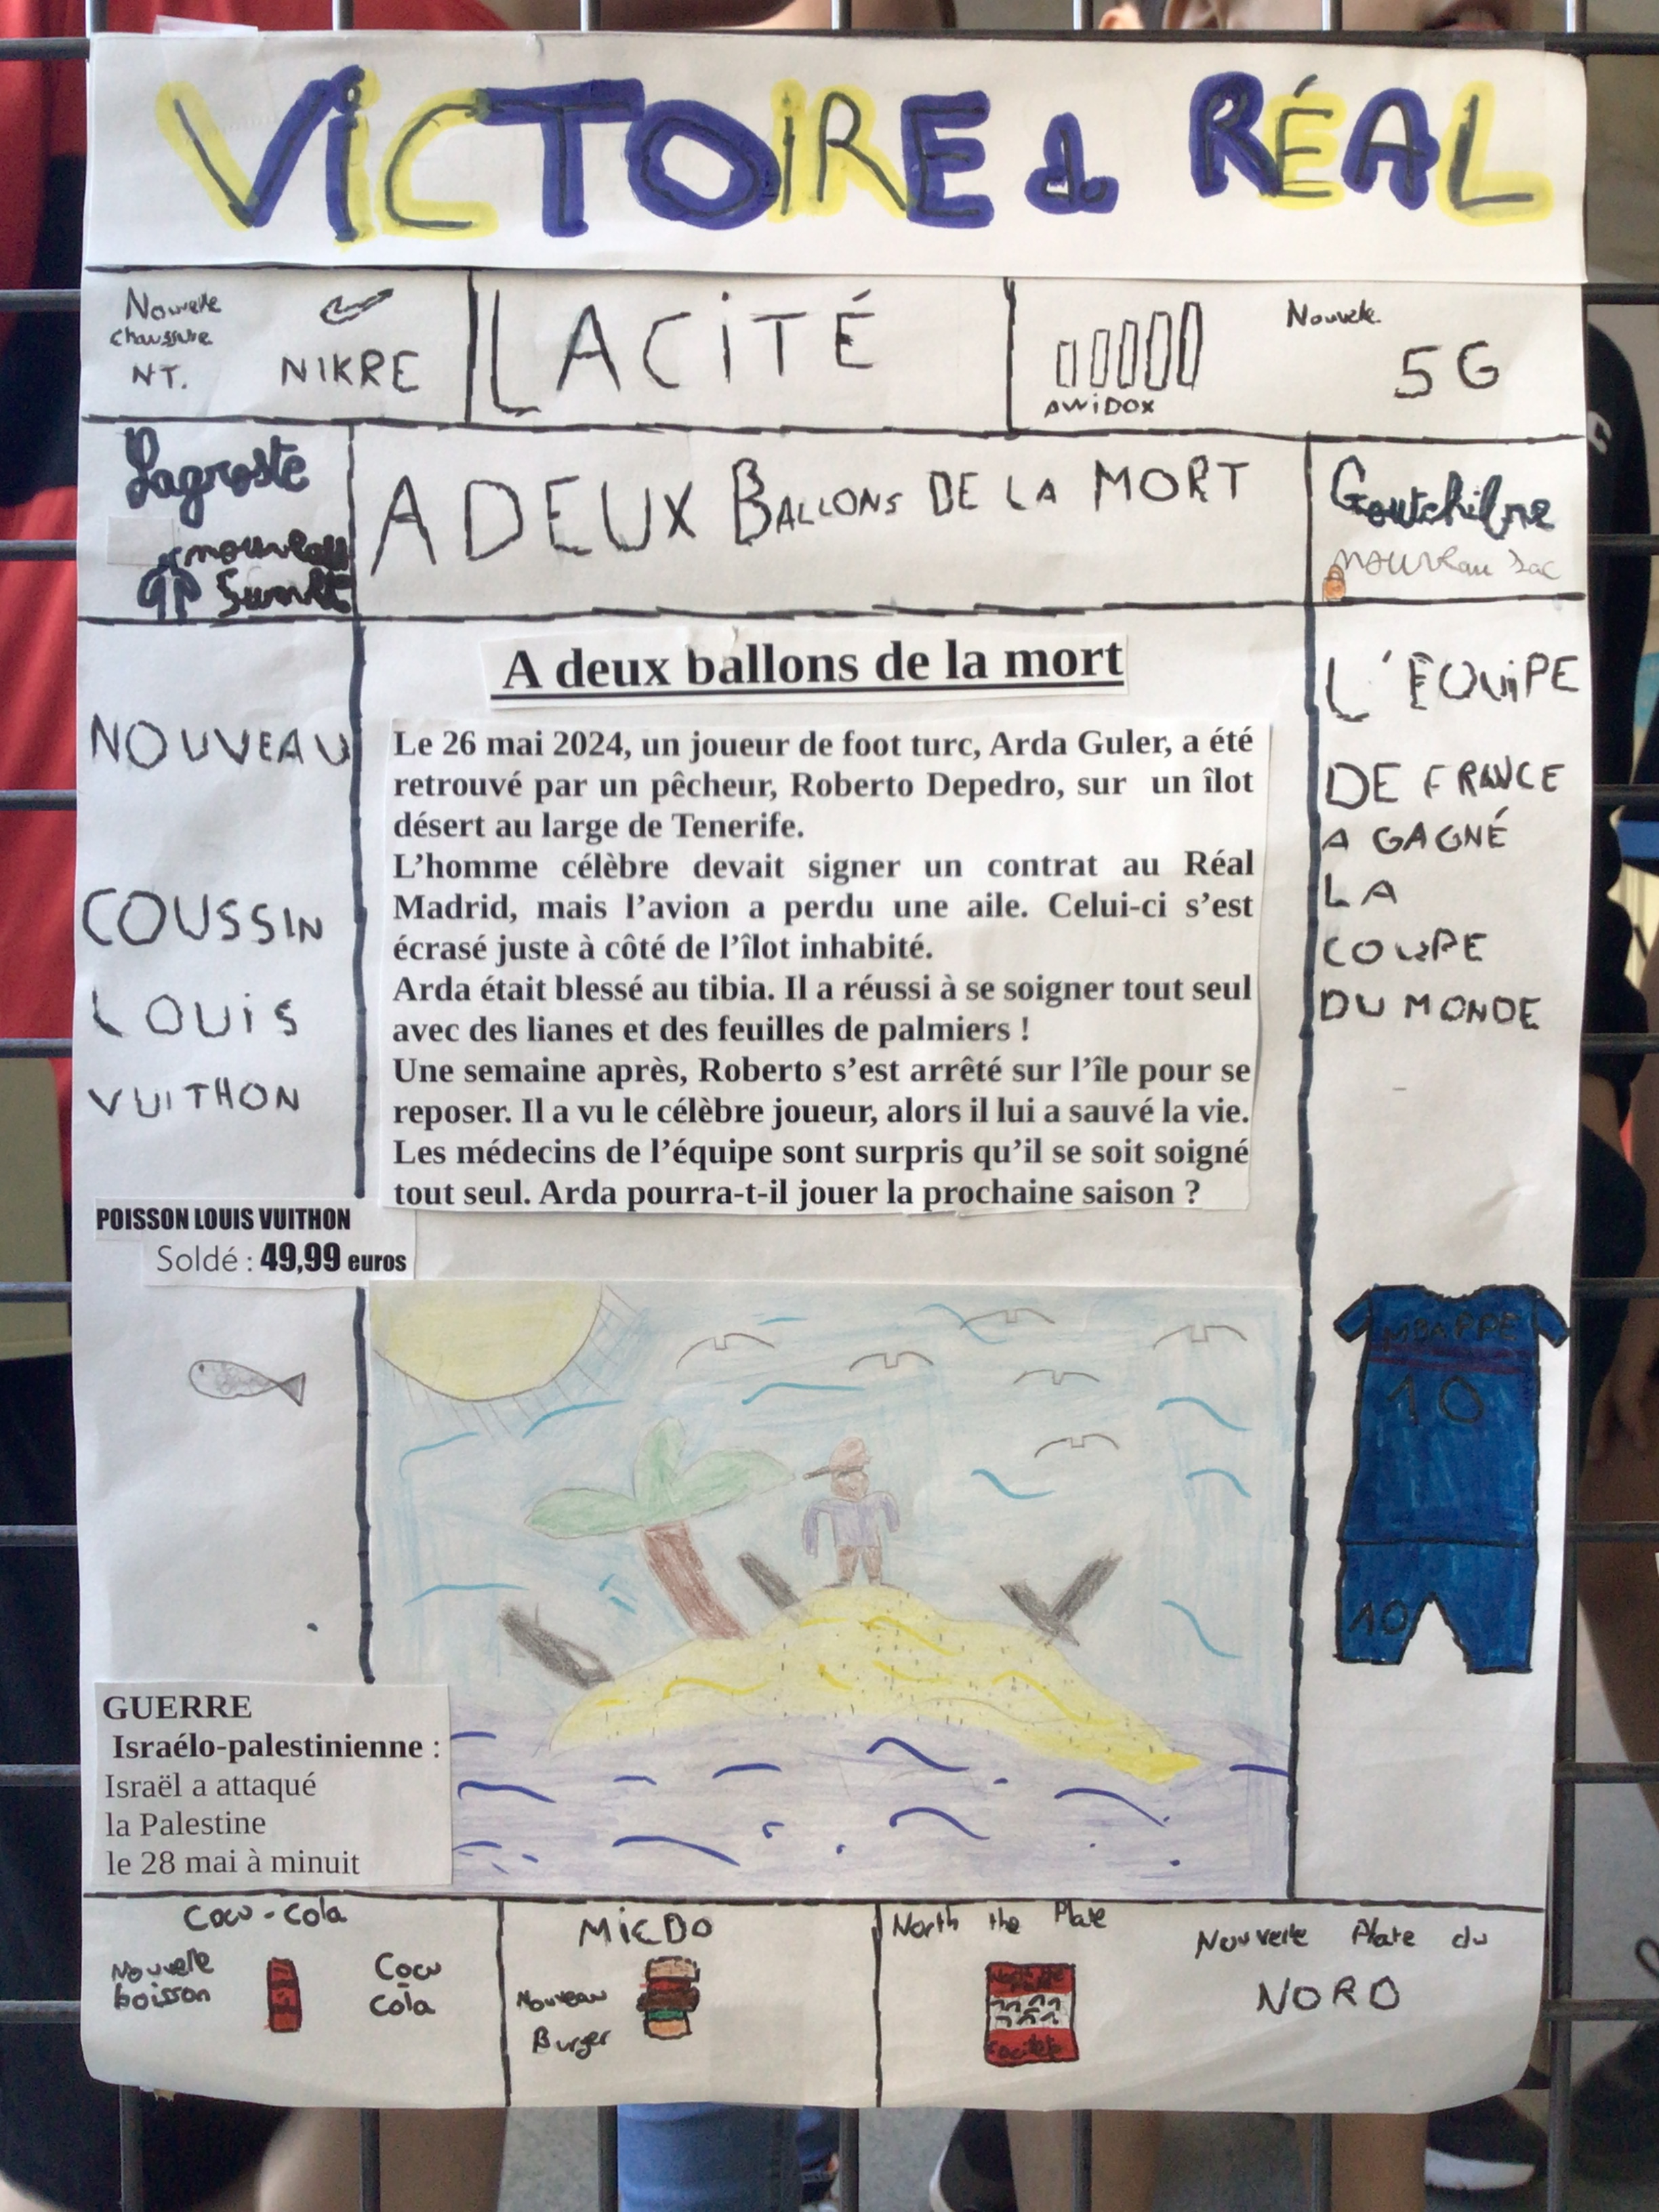 VICTOIRE du RÉAL
Nouvelle
chaussure
NT.
NIKRE
LACITÉ
AWIDOX
Nouvele
5G
Lagroste
nouveau
A DEUX BALLONS DE LA MORT
Goutchilne
nouveau sac
A deux ballons de la mort
Le 26 mai 2024, un joueur de foot turc, Arda Guler, a été
retrouvé par un pêcheur, Roberto Depedro, sur un îlot
désert au large de Tenerife.
L'homme célèbre devait signer un contrat au Réal
Madrid, mais l'avion a perdu une aile. Celui-ci s'est
écrasé juste à côté de l'îlot inhabité.
Arda était blessé au tibia. Il a réussi à se soigner tout seul
avec des lianes et des feuilles de palmiers !
Une semaine après, Roberto s'est arrêté sur l'île pour se
reposer. Il a vu le célèbre joueur, alors il lui a sauvé la vie.
Les médecins de l'équipe sont surpris qu'il se soit soigné
tout seul. Arda pourra-t-il jouer la prochaine saison ?
NOUVEAU
COUSSIN
LOUIS
VUITHON
POISSON LOUIS VUITHON
Soldé : 49,99 euros
GUERRE
Israélo-palestinienne :
Israël a attaqué
la Palestine
le 28 mai à minuit
L'ÉQUIPE
DE FRANCE
A GAGNÉ
LA
COUPE
DU MONDE
MBAPPE
10
10
Cocu-Cola
Nouvelle
boisson
Cocu
Cola
MICDO
Nouveau
Burger
North the Plate
Nouvelle Plate du
NORD